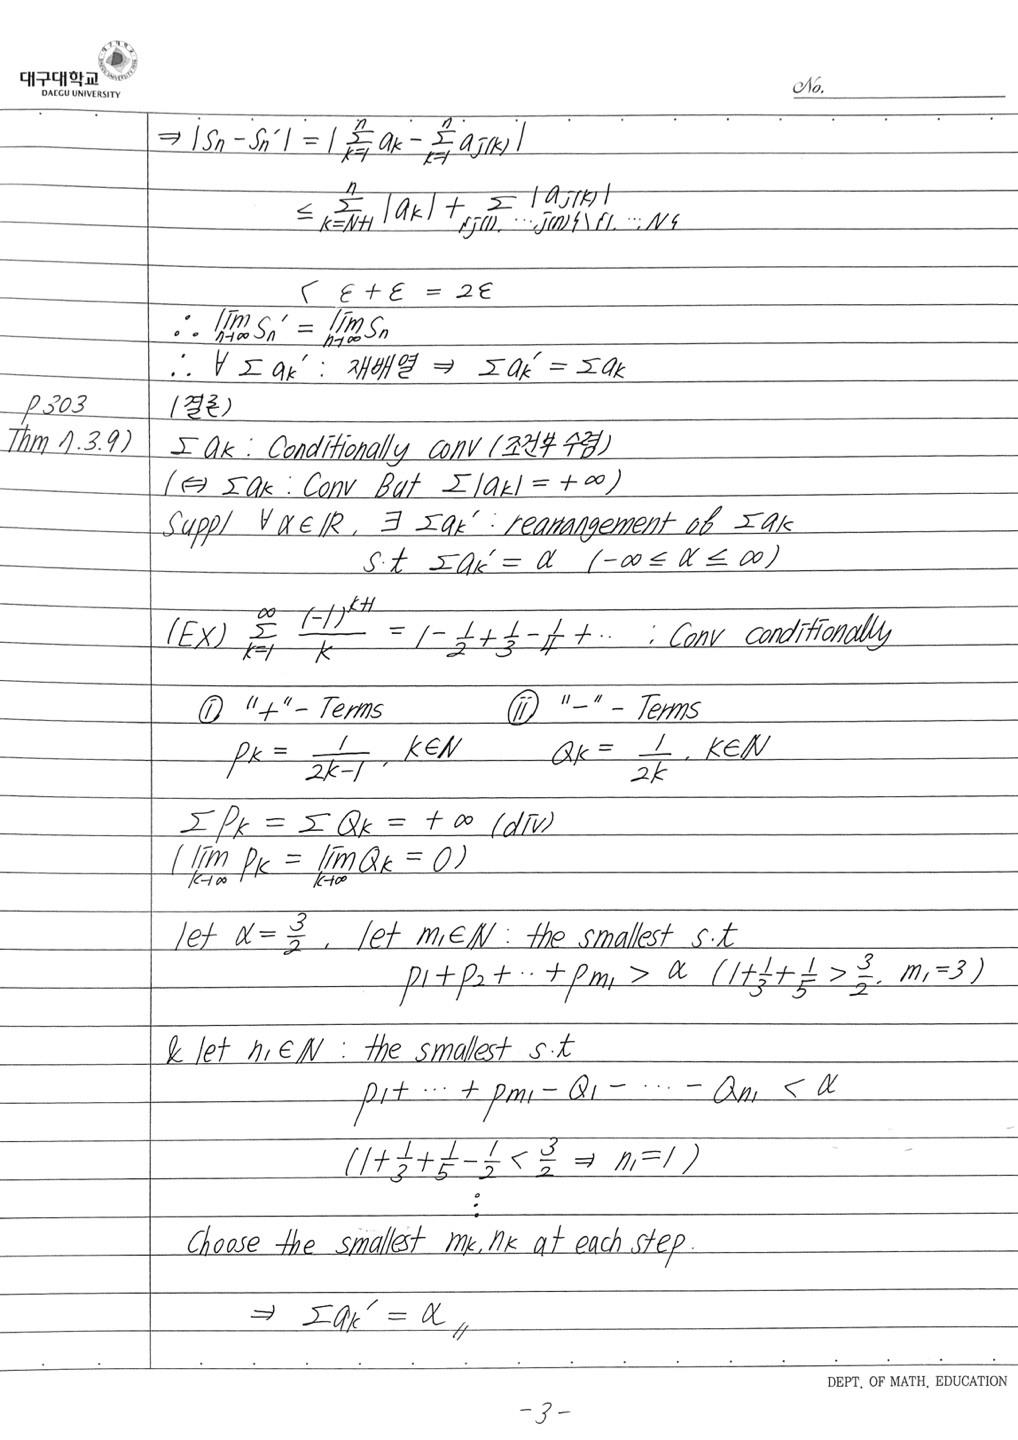 대구대학교
DAEGU UNIVERSITY
No.
⇒ |Sn - Sn'| = | Σ_{k=1}^{n} ak - Σ_{k=1}^{n} aj(k) |
≤ Σ_{k=N+1}^{n} |ak| + Σ_{{j(1), ⋯, j(n)}\{1, ⋯, N}} |aj(k)|
< ε + ε = 2ε
∴ lim_{n→∞} Sn' = lim_{n→∞} Sn
∴ ∀ Σ ak' : 재배열 ⇒ Σak' = Σak
p303 (결론)
Thm 7.3.9) Σ ak : Conditionally conv (조건부 수렴)
(⇔ Σak : Conv But Σ|ak| = +∞)
Suppl ∀α∈ℝ, ∃ Σak' : rearrangement of Σak
s.t Σak' = α (-∞ ≤ α ≤ ∞)
(Ex) Σ_{k=1}^{∞} (-1)^{k+1}/k = 1 - 1/2 + 1/3 - 1/4 + ‥ : Conv conditionally
ⓘ "+" - Terms ⓘⓘ "-" - Terms
Pk = 1/(2k-1), k∈ℕ Qk = 1/2k, k∈ℕ
Σ Pk = Σ Qk = +∞ (div)
( lim_{k→∞} Pk = lim_{k→∞} Qk = 0)
let α = 3/2, let m1∈ℕ : the smallest s.t
P1 + P2 + ‥ + Pm1 > α (1 + 1/3 + 1/5 > 3/2, m1 = 3)
& let n1∈ℕ : the smallest s.t
P1 + ⋯ + Pm1 - Q1 - ⋯ - Qn1 < α
(1 + 1/3 + 1/5 - 1/2 < 3/2 ⇒ n1 = 1)
⋮
Choose the smallest mk, nk at each step.
⇒ Σak' = α //
DEPT. OF MATH. EDUCATION
- 3 -